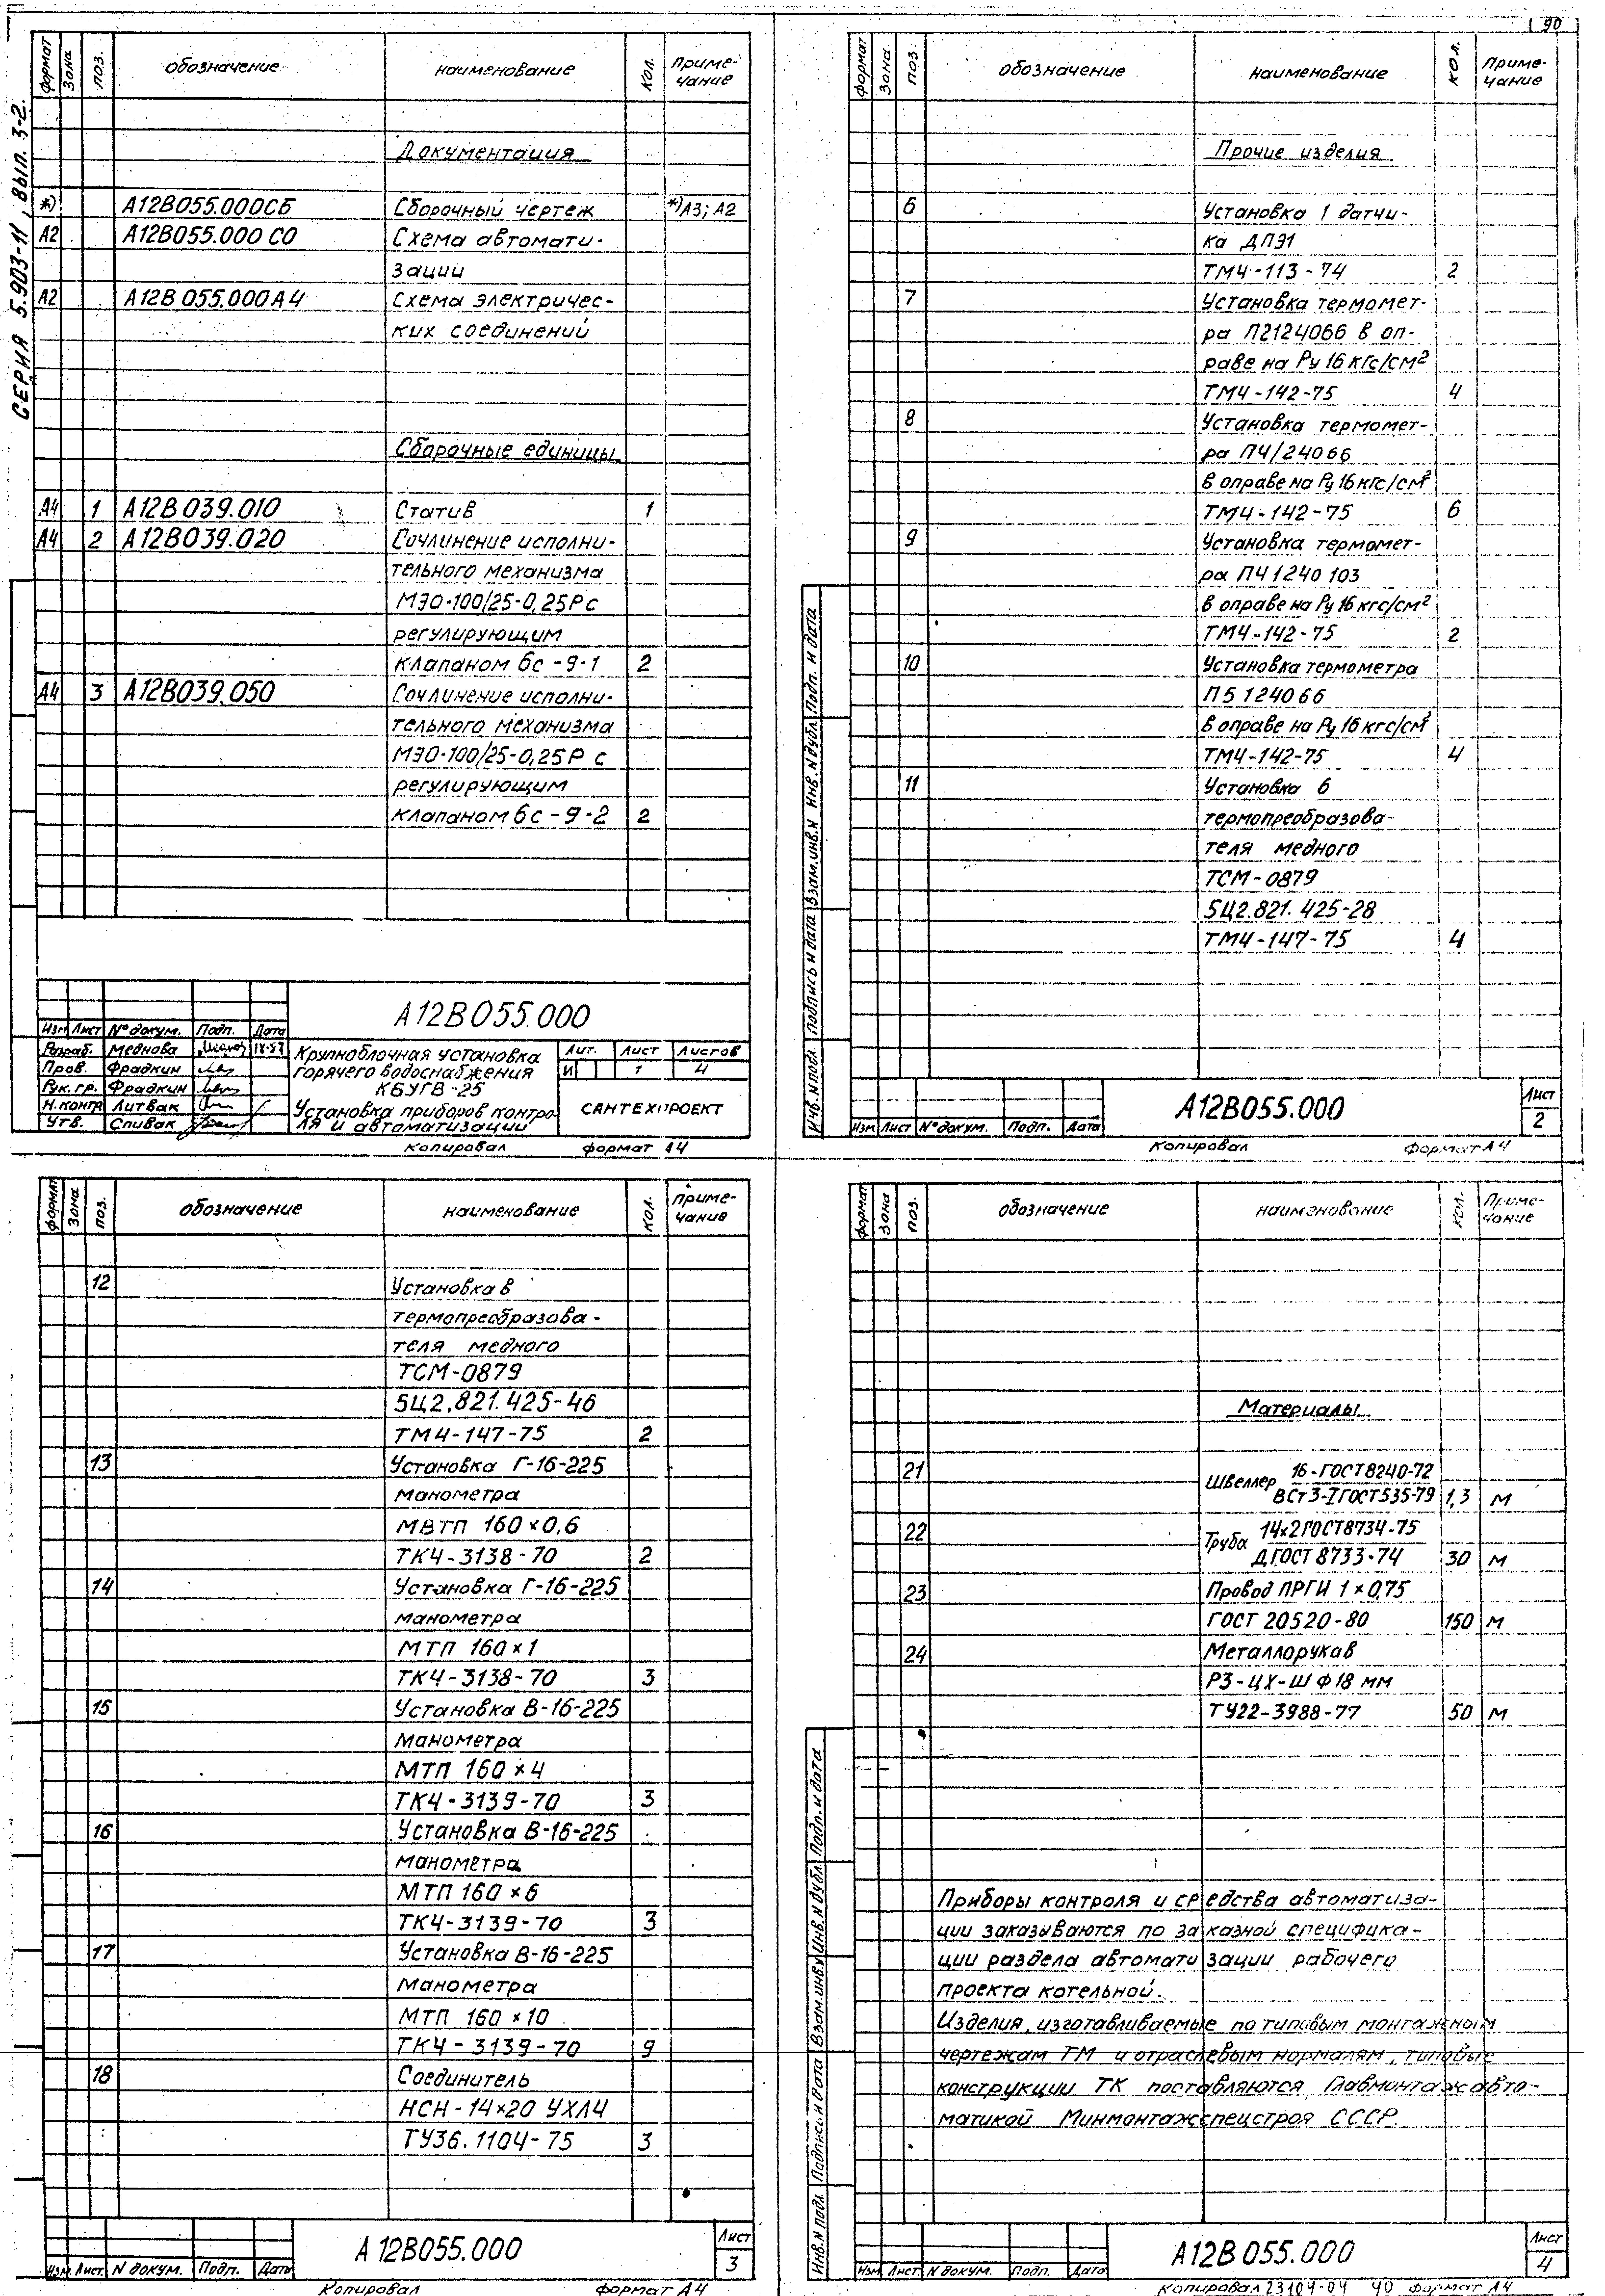 90
СЕРИЯ 5.903-11, вып. 3-2.
формат зона поз. обозначение наименование кол. приме-
чание
Документация
*) А12В055.000СБ Сборочный чертеж *)А3; А2
А2 А12В055.000 СО Схема автомати-
зации
А2 А12В055.000А4 Схема электричес-
ких соединений
Сборочные единицы
А4 1 А12В039.010 Статив 1
А4 2 А12В039.020 Сочлинение исполни-
тельного механизма
МЭО-100/25-0,25Р с
регулирующим
клапаном 6с-9-1 2
А4 3 А12В039.050 Сочлинение исполни-
тельного механизма
МЭО-100/25-0,25Р с
регулирующим
клапаном 6с-9-2 2
А12В055.000
Изм Лист № докум. Подп. Дата
Разраб. Меднова
Пров. Фрадкин
Рук. гр. Фрадкин
Н.контр Литвак
Утв. Спивак
Крупноблочная установка
горячего водоснабжения
КБУГВ-25
Установка приборов контро-
ля и автоматизации
Лит. Лист Листов
И 1 4
САНТЕХПРОЕКТ
Копировал формат А4
формат зона поз обозначение наименование кол. Приме-
чание
Прочие изделия
6 Установка 1 датчи-
ка ДПЭ1
ТМ4-113-74 2
7 Установка термомет-
ра П2124066 в оп-
раве на Ру 16 кгс/см²
ТМ4-142-75 4
8 Установка термомет-
ра П4/24066
в оправе на Ру 16 кгс/см²
ТМ4-142-75 6
9 Установка термомет-
ра П4 1240 103
в оправе на Ру 16 кгс/см²
ТМ4-142-75 2
10 Установка термометра
П5 124066
в оправе на Ру 16 кгс/см²
ТМ4-142-75 4
11 Установка б
термопреобразова-
теля медного
ТСМ-0879
5Ц2.821.425-28
ТМ4-147-75 4
Инв.N подл. Подпись и дата Взам.инв.N Инв.N дубл. Подп. и дата
А12В055.000
Лист
2
Изм Лист № докум. Подп. Дата
Копировал Формат А4
формат зона поз. обозначение наименование кол. приме-
чание
12 Установка в
термопреобразова-
теля медного
ТСМ-0879
5Ц2.821.425-46
ТМ4-147-75 2
13 Установка Г-16-225
манометра
МВТП 160×0,6
ТК4-3138-70 2
14 Установка Г-16-225
манометра
МТП 160×1
ТК4-3138-70 3
15 Установка В-16-225
манометра
МТП 160×4
ТК4-3139-70 3
16 Установка В-16-225
манометра
МТП 160×6
ТК4-3139-70 3
17 Установка В-16-225
манометра
МТП 160×10
ТК4-3139-70 9
18 Соединитель
НСН-14×20 УХЛ4
ТУ36.1104-75 3
А12В055.000
Лист
3
Изм. Лист. N докум. Подп. Дата
Копировал формат А4
формат зона поз. обозначение наименование кол. Приме-
чание
Материалы
21 Швеллер 16-ГОСТ8240-72
ВСт3-IГОСТ535-79 1,3 м
22 Труба 14×2ГОСТ8734-75
Д ГОСТ 8733-74 30 м
23 Провод ПРГИ 1×0,75
ГОСТ 20520-80 150 м
24 Металлорукав
РЗ-ЦХ-Ш Ф18 мм
ТУ22-3988-77 50 м
Приборы контроля и средства автоматиза-
ции заказываются по заказной специфика-
ции раздела автоматизации рабочего
проекта котельной.
Изделия, изготавливаемые по типовым монтажным
чертежам ТМ и отраслевым нормалям, типовые
конструкции ТК поставляются Главмонтажавто-
матикой Минмонтажспецстроя СССР
Инв.N подл. Подпись и дата Взам.инв.N Инв.N дубл. Подп. и дата
А12В055.000
Лист
4
Изм Лист N докум. Подп. Дата
Копировал 23104-04 90 формат А4